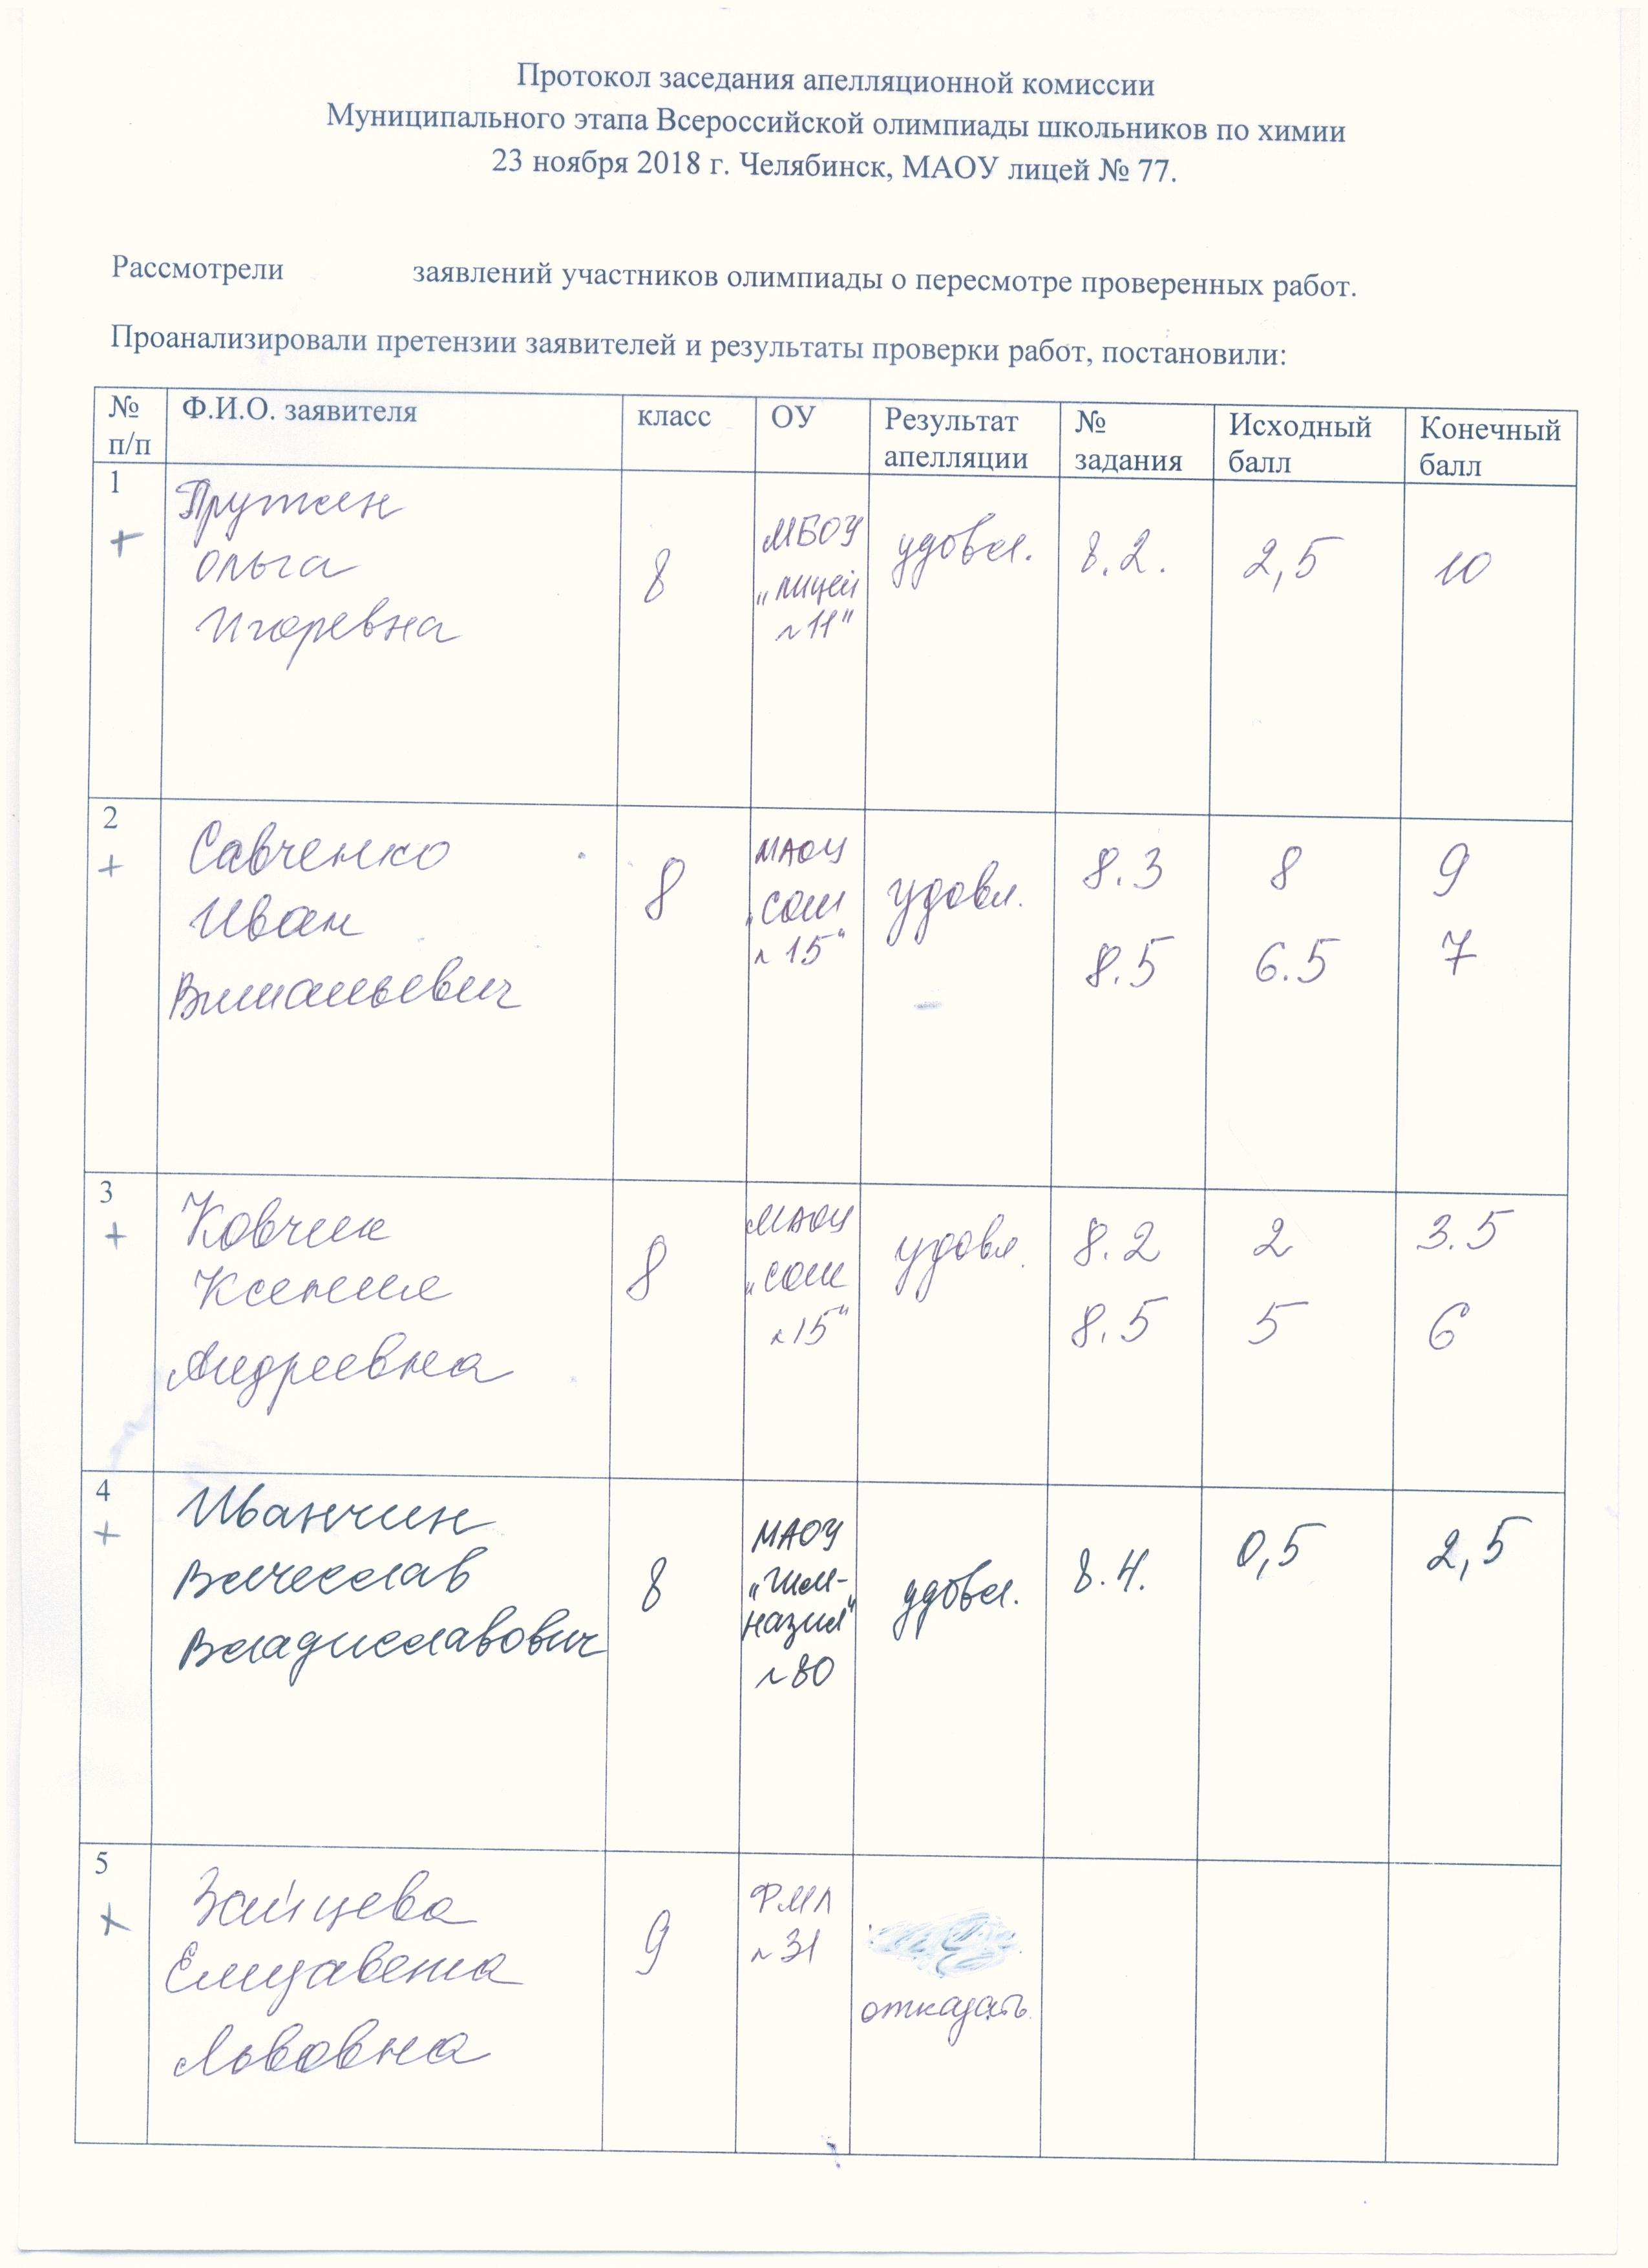 Протокол заседания апелляционной комиссии
Муниципального этапа Всероссийской олимпиады школьников по химии
23 ноября 2018 г. Челябинск, МАОУ лицей № 77.
Рассмотрели заявлений участников олимпиады о пересмотре проверенных работ.
Проанализировали претензии заявителей и результаты проверки работ, постановили:
№ п/п
Ф.И.О. заявителя
класс
ОУ
Результат апелляции
№ задания
Исходный балл
Конечный балл
1
+
Ольга
Игоревна
8
МБОУ
„лицей
№11"
удовл.
8.2.
2,5
10
2
+
Савченко
Иван
Витальевич
8
МАОУ
„СОШ
№15"
удовл.
8.3
8
9
8.5
6.5
7
3
+
Ковчик
Ксения
Андреевна
8
МАОУ
„СОШ
№15"
удовл.
8.2
2
3.5
8.5
5
6
4
+
Иванчин
Вячеслав
Владиславович
8
МАОУ
„Гим-
назия"
№80
удовл.
8.4.
0,5
2,5
5
+
Зайцева
Елизавета
Львовна
9
ФМЛ
№31
отказать.